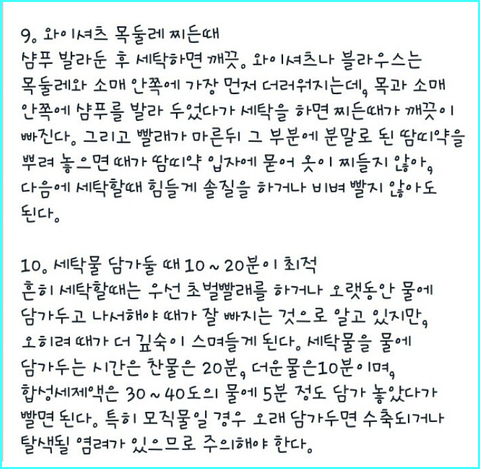 9. 와이셔츠 목둘레 찌든때
샴푸 발라둔 후 세탁하면 깨끗. 와이셔츠나 블라우스는
목둘레와 소매 안쪽에 가장 먼저 더러워지는데, 목과 소매
안쪽에 샴푸를 발라 두었다가 세탁을 하면 찌든때가 깨끗이
빠진다. 그리고 빨래가 마른뒤 그 부분에 분말로 된 땀띠약을
뿌려 놓으면 때가 땀띠약 입자에 묻어 옷이 찌들지 않아,
다음에 세탁할때 힘들게 솔질을 하거나 비벼 빨지 않아도
된다.
10. 세탁물 담가둘 때 10~20분이 최적
흔히 세탁할때는 우선 초벌빨래를 하거나 오랫동안 물에
담가두고 나서해야 때가 잘 빠지는 것으로 알고 있지만,
오히려 때가 더 깊숙이 스며들게 된다. 세탁물을 물에
담가두는 시간은 찬물은 20분, 더운물은10분이며,
합성세제액은 30~40도의 물에 5분 정도 담가 놓았다가
빨면 된다. 특히 모직물일 경우 오래 담가두면 수축되거나
탈색될 염려가 있으므로 주의해야 한다.